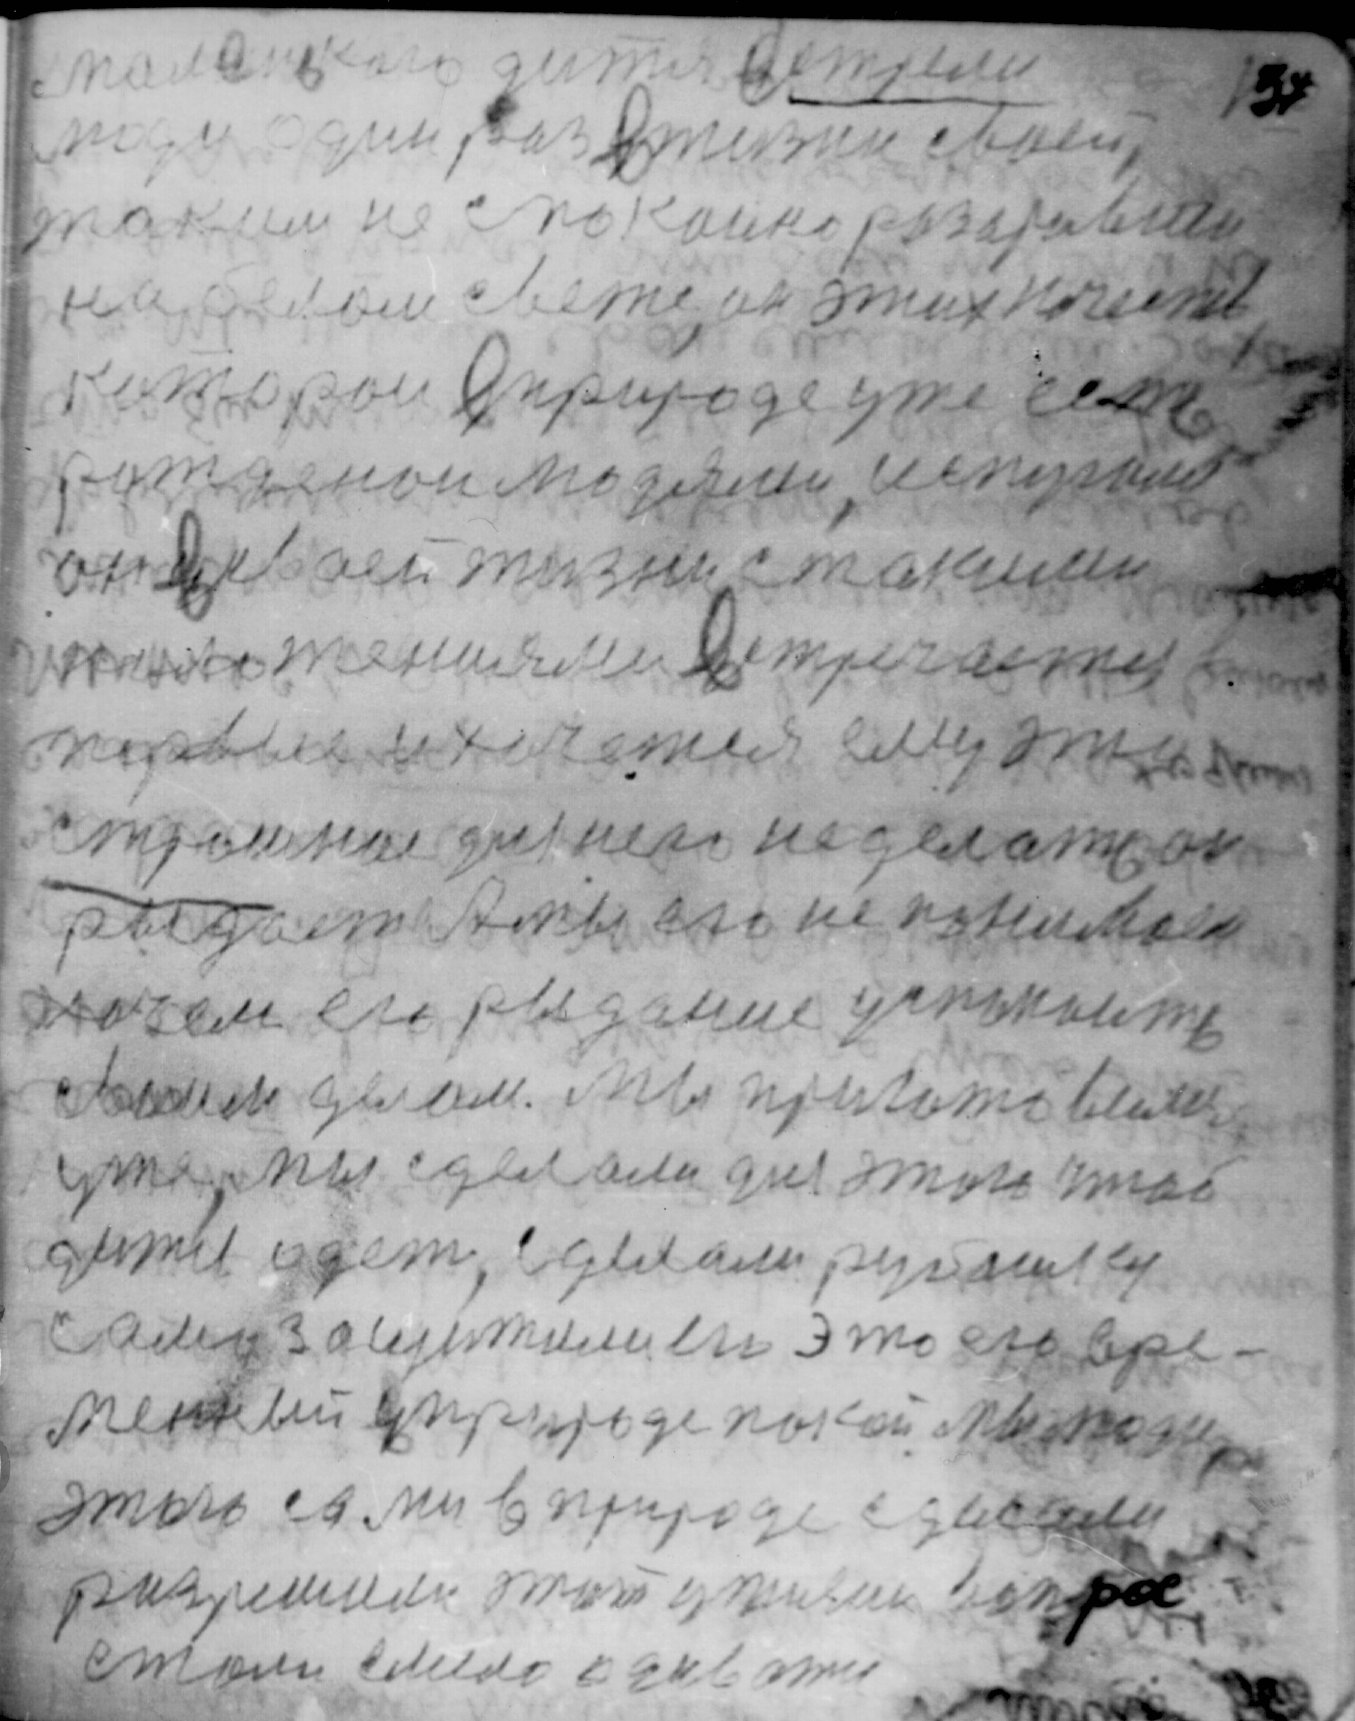 маленького дитя Встрели 34
люди один раз Вжизни своей,
таким не спокойно
на белом свете, он этих качеств
которои Вприроде уже есть
рожденои людями, испугался
он Всвоей жизни с такими
положениями Встречается
первые и хочется ему это
страшное для него неделать он
рыдает А мы его не понимаем
чем его рыдание успокоить
своим делом. Мы приготовили
уже, мы сделали для этого чтоб
дитя одет, сделали рубашку
сами защитили его Это его вре-
менный Вприроде покой. Мы люди
этого сами в природе сделали
разрешили этот вопрос
стали смело одевати